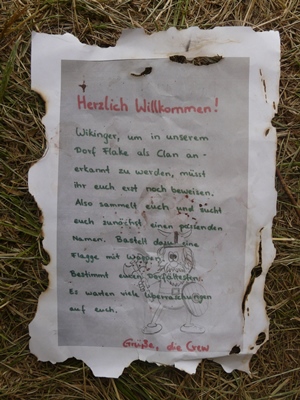 Herzlich Willkommen!
Wikinger, um in unserem
Dorf Flake als Clan an-
erkannt zu werden, müsst
ihr euch erst noch beweisen.
Also sammelt euch und sucht
euch zunächst einen passenden
Namen. Bastelt dazu eine
Flagge mit Wappen.
Bestimmt euren Dorfältesten.
Es warten viele Überraschungen
auf euch.
Grüße, die Crew